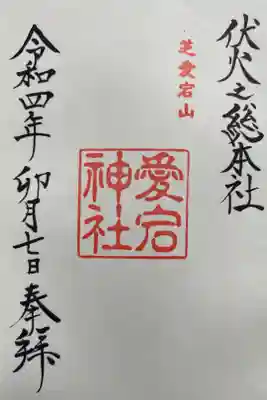 伏火之総本社
芝愛宕山
愛宕
神社
令和四年 卯月七日 奉拝